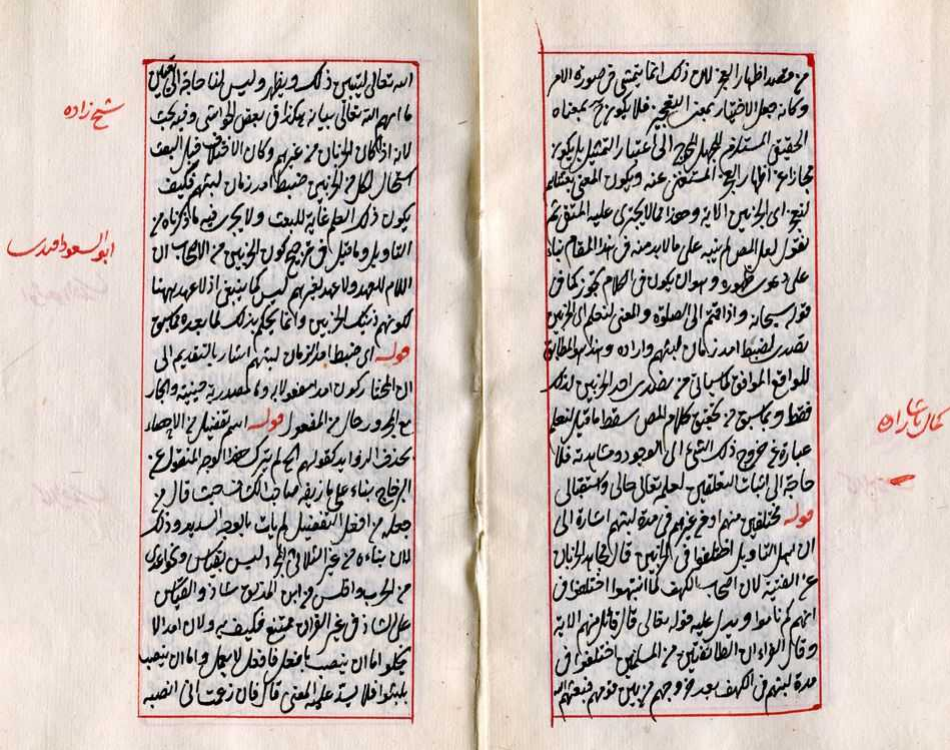 من قصد اظهار العجز لان ذلك انما يتمشى فى صورة الامر
وكانه جعل الاختبار بمعنى فلا يكون بمعناه
الحقيقى المستلزم للجهل الى اعتبار التمثيل بل يكون
مجازا عن اظهار العجز عنه ويكون المعنى بعثناهم
اى الحزبين الاية وهذا مما لا يجترى عليه المتقى ثم
نقول لعل المص لم ينبه على ما لابد منه فى هذا المقام بناء
على دعوى ظهوره وهو ان يكون فى الكلام تجوز كما فى
قوله سبحانه واذا قمتم الى الصلوة والمعنى لنعلم اى الحزبين
تصدى لضبط امد زمان لبثهم واراده وهذا هو المطابق
للواقع الموافق لما سيأتى من تصدى احد الحزبين لذلك
فقط وبما سبق من تحقيق كلام المص سقط ما قيل لنعلم
عبارة عن خروج ذلك الشئ الى الوجود ومشاهدته فلا
حاجة الى اثبات التعلقين لعلمه تعالى حالى واستقبالى
قوله مختلفين منهم او من غيرهم فى مدة لبثهم اشارة الى
ان اهل التأويل اختلفوا فى الحزبين قال مجاهد الحزبان
من الفتية لان اصحاب الكهف لما انتبهوا اختلفوا فى
انهم كم ناموا ويدل عليه قوله تعالى قال قائل منهم الاية
وقال الفراء ان الطائفتين من المسلمين اختلفوا فى
مدة لبثهم فى الكهف بعد خروجهم من بين قومهم فبعثهم الله
كمال باشا زاده
الله تعالى ليتبين ذلك ويظهر وليس لنا حاجة الى تعيين
ما ابهم الله تعالى بيانه هكذا فى بعض الحواشى وفيه بحث
لانه اذا كان الحزبان من غيرهم وكان الاختلاف قبل البعث
استحال لكل من الحزبين ضبط امد زمان لبثهم فكيف
يكون ذلك العلم غاية للبعث ولا يجرى فيه ما ذكرناه من
التأويل وما قيل فى ترجيح كون الحزبين من الاصحاب ان
اللام للعهد ولا عهد لغيرهم ليس كما ينبغى اذ لا عهد ههنا
لكونهم ذينك الحزبين وانما يحكم بذلك لما بعده لما سبق
قوله اى ضبط امد الزمان لبثهم اشار بالتقديم الى
ان المختار كون امد مفعولا به وما مصدرية حينية والجار
مع المجرور حال من المفعول قوله اسم تفضيل من الاحصاء
بحذف الزوائد كقولهم الخ لم يترك هذا الوجه المنقول عن
الزجاج بناء على ما زيفه صاحب الكشاف حيث قال من
جعله من افعل التفضيل لم يأت بالوجه السديد وذلك
لان بناءه من غير الثلاثى المجرد ليس بقياس ونحو اعدى
من الجرب وافلس من ابن المذلق شاذ والقياس
على الشاذ فى غير القران ممتنع فكيف به ولان امدا لا
يخلو اما ان ينصب بافعل فافعل لا يعمل واما ان ينصب
بلبثوا فلا يسد عليه المعنى قال فان زعمت انى انصبه
شيخ زاده
ابو السعود افندى